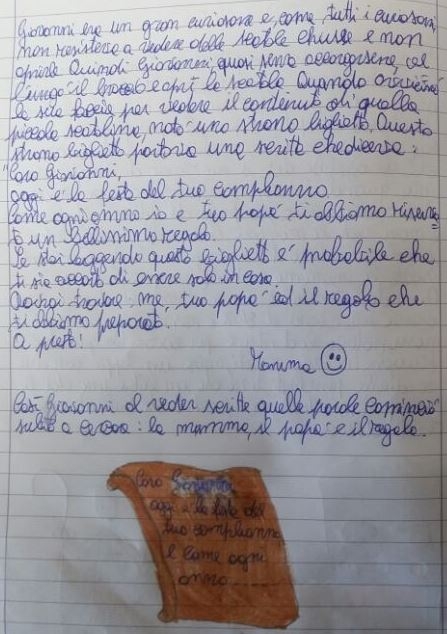 Giovanni era un gran curiosone e, come tutti i curiosoni,
non resisteva a vedere delle scatole chiuse e non
aprirle. Quindi Giovanni, quasi senza accorgersene,
allungò il braccio e aprì la scatola. Quando avvicinò
la sua faccia per vedere il contenuto di quella
piccola scatolina, notò uno strano biglietto. Questo
strano biglietto portava una scritta che diceva:
"Caro Giovanni,
oggi è la festa del tuo complianno.
Come ogni anno io e tuo papà ti abbiamo riserva=
to un bellissimo regalo.
Se stai leggendo questo biglietto è probabile che
ti sia accorto di essere solo in casa.
Dovrai trovare: me, tuo papà ed il regalo che
ti abbiamo preparato.
A presto!
Mamma
Così Giovanni al veder scritte quelle parole cominciò
subito a cercare: la mamma, il papà e il regalo.
Caro Giovanni,
oggi è la festa del
tuo complianno
e come ogni
anno..........